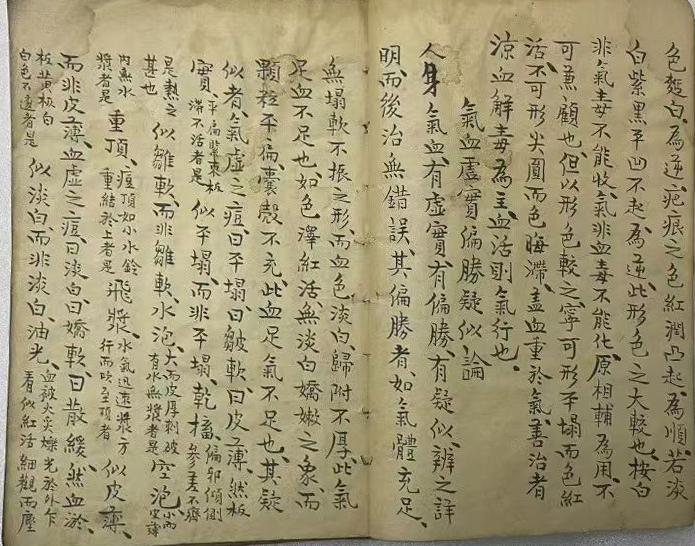 色變白為逆疤痕之色紅潤凸起為順若淡
白紫黑平凹不起為逆此形色之大較也、按白
非氣毒不能收氣、非血毒不能化、原相輔為用、不
可兼顧也、但以形色較之、寧可形平塌而色紅
活、不可形尖圓而色晦滯、蓋血重於氣、善治者
涼血解毒為主、血活則氣行也、
氣血虛實偏勝疑似論
人身氣血、有虛實、有偏勝、有疑似、辨之詳
明、而後治無錯誤、其偏勝者、如氣體充足、
無塌軟不振之形、而血色淡白、歸附不厚、此氣
足血不足也、如色澤紅活、無淡白嬌嫩之象、而
顆粒平扁、囊殼不充、此血足氣不足也、其疑
似者、氣虛之痘、曰平塌、曰皺軟、曰皮薄、然板
實、平扁緊束板滯不活者是似平塌、而非平塌、乾搐、偏邪傾側參差不齊
是熱之甚也似皺軟、而非皺軟、水泡、大而皮厚刺破有水無漿者是空泡、小而皮薄
內無水漿者是重頂、痘頂如小水鈴重結於上者是飛漿、水氣迅速漿方行而吹至頂者似皮薄、
而非皮薄、血虛之痘、曰淡白、曰嬌軟、曰散緩、然血於、
板黃板白白色不遠者是似淡白、而非淡白、油光、血被火炎爍光於外乍看似紅活細觀而塵